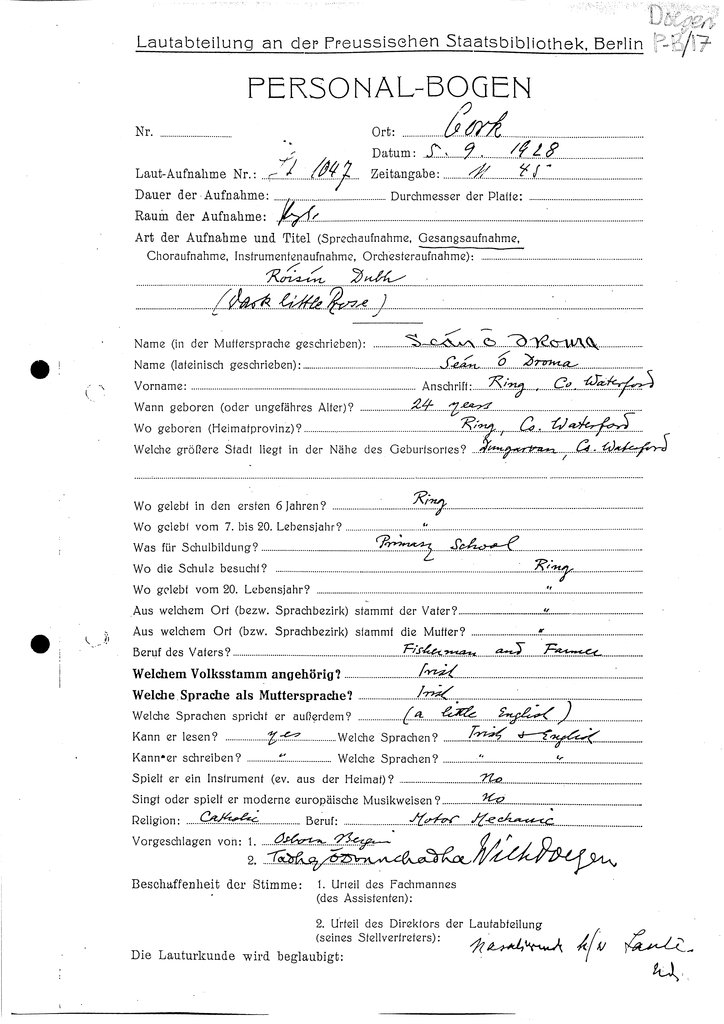 Doegen
P-B/17
Lautabteilung an der Preussischen Staatsbibliothek, Berlin
PERSONAL-BOGEN
Nr. Ort: Cork
Datum: 5. 9. 1928
Laut-Aufnahme Nr.: 1047 Zeitangabe: 11 45
Dauer der Aufnahme: Durchmesser der Platte:
Raum der Aufnahme:
Art der Aufnahme und Titel (Sprechaufnahme, Gesangsaufnahme,
Choraufnahme, Instrumentenaufnahme, Orchesteraufnahme):
Róisín Dubh
(Dark little Rose)
Name (in der Muttersprache geschrieben): Seán Ó Droma
Name (lateinisch geschrieben): Seán Ó Droma
Vorname: Anschrift: Ring, Co. Waterford
Wann geboren (oder ungefähres Alter)? 24 years
Wo geboren (Heimatprovinz)? Ring, Co. Waterford
Welche größere Stadt liegt in der Nähe des Geburtsortes? Dungarvan, Co. Waterford
Wo gelebt in den ersten 6 Jahren? Ring
Wo gelebt vom 7. bis 20. Lebensjahr? "
Was für Schulbildung? Primary School
Wo die Schule besucht? Ring
Wo gelebt vom 20. Lebensjahr? "
Aus welchem Ort (bezw. Sprachbezirk) stammt der Vater? "
Aus welchem Ort (bzw. Sprachbezirk) stammt die Mutter? "
Beruf des Vaters? Fisherman and Farmer
Welchem Volksstamm angehörig? Irish
Welche Sprache als Muttersprache? Irish
Welche Sprachen spricht er außerdem? (a little English)
Kann er lesen? yes Welche Sprachen? Irish & English
Kann er schreiben? " Welche Sprachen? " "
Spielt er ein Instrument (ev. aus der Heimat)? No
Singt oder spielt er moderne europäische Musikweisen? No
Religion: Catholic Beruf: Motor Mechanic
Vorgeschlagen von: 1. Osborn Bergin
2. Tadhg Ó Donnchadha Wilh Doegen
Beschaffenheit der Stimme: 1. Urteil des Fachmannes
(des Assistenten):
2. Urteil des Direktors der Lautabteilung
(seines Stellvertreters):
Die Lauturkunde wird beglaubigt: